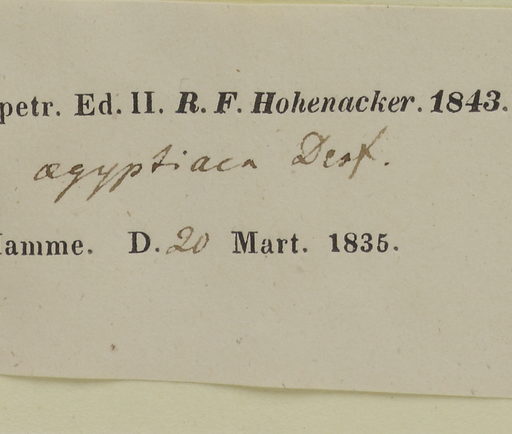 petr. Ed. II. R. F. Hohenacker. 1843.
ægyptiaca Desf.
Hamme. D. 20 Mart. 1835.